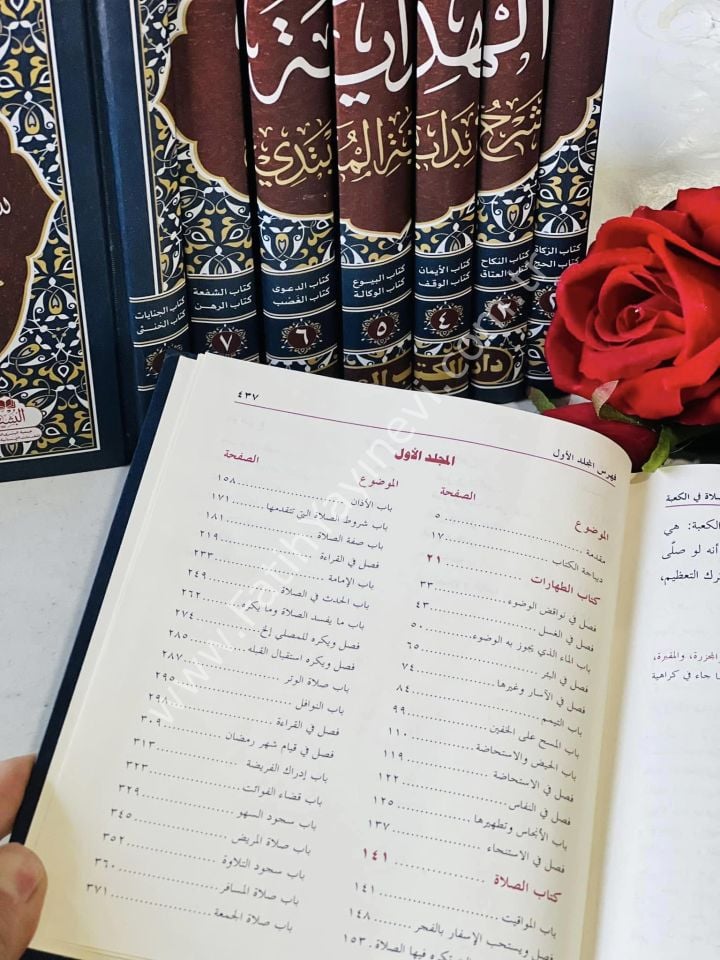 الهداية
شرح بداية المبتدي
كتاب الزكاة
كتاب الحج
كتاب النكاح
كتاب العتاق
٣
كتاب الأيمان
كتاب الوقف
٤
كتاب البيوع
كتاب الوكالة
٥
كتاب الدعوى
كتاب الغصب
٦
كتاب الشفعة
كتاب الرهن
٧
كتاب الجنايات
كتاب الخنثى
فهرس المجلد الأول
٤٣٧
المجلد الأول
الموضوع الصفحة
مقدمة ٥
ديباجة الكتاب ١٧
كتاب الطهارات ٢١
فصل في نواقض الوضوء ٣٣
فصل في الغسل ٤٣
باب الماء الذي يجوز به الوضوء ٥٠
فصل في البئر ٦٥
فصل في الآسار وغيرها ٧٤
باب التيمم ٨٤
باب المسح على الخفين ٩٩
باب الحيض والاستحاضة ١١٠
فصل في الاستحاضة ١١٩
فصل في النفاس ١٢٢
باب الأنجاس وتطهيرها ١٢٥
فصل في الاستنجاء ١٣٧
كتاب الصلاة ١٤١
باب المواقيت ١٤١
فصل ويستحب الإسفار بالفجر ١٤٨
تكره فيها الصلاة . ١٥٣
الموضوع الصفحة
باب الأذان ١٥٨
باب شروط الصلاة التي تتقدمها ١٧١
باب صفة الصلاة ١٨١
فصل في القراءة ٢١٩
باب الإمامة ٢٣٣
باب الحدث في الصلاة ٢٤٩
باب ما يفسد الصلاة وما يكره ٢٦٢
فصل ويكره للمصلي إلخ ٢٧٤
فصل ويكره استقبال القبلة ٢٨٥
باب صلاة الوتر ٢٨٧
باب النوافل ٢٩٥
فصل في القراءة ٢٩٨
فصل في قيام شهر رمضان ٣٠٩
باب إدراك الفريضة ٣١٣
باب قضاء الفوائت ٣٢٣
باب سجود السهو ٣٢٩
باب صلاة المريض ٣٤٥
باب سجود التلاوة ٣٥٢
باب صلاة المسافر ٣٦٠
باب صلاة الجمعة ٣٧١
لاة في الكعبة
الكعبة: هي
أنه لو صلّى
ترك التعظيم،
المجزرة، والمقبرة،
ا جاء في كراهية
www.FatihYayinevi.com.tr